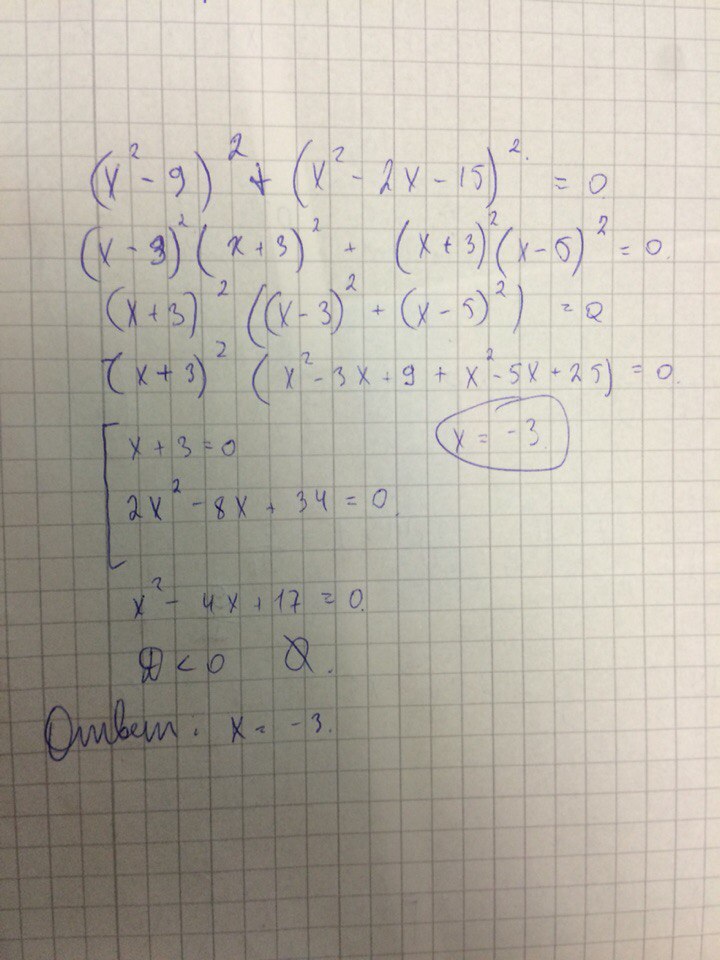 (x² - 9)² + (x² - 2x - 15)² = 0
(x - 3)² (x + 3)² + (x + 3)² (x - 5)² = 0.
(x + 3)² ((x - 3)² + (x - 5)²) = 0
(x + 3)² (x² - 3x + 9 + x² - 5x + 25) = 0.
x + 3 = 0
x = -3.
2x² - 8x + 34 = 0.
x² - 4x + 17 = 0.
D < 0 ∅.
Ответ: x = -3.